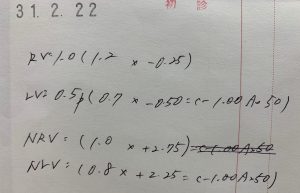 初診
31.2.22
RV=1.0(1.2 x -0.25)
LV=0.5p(0.7 x -0.50=c-1.00Ax50
NRV=(1.0 x +2.75)=c-1.00Ax50
NLV=(0.8 x +2.25=c-1.00Ax50)